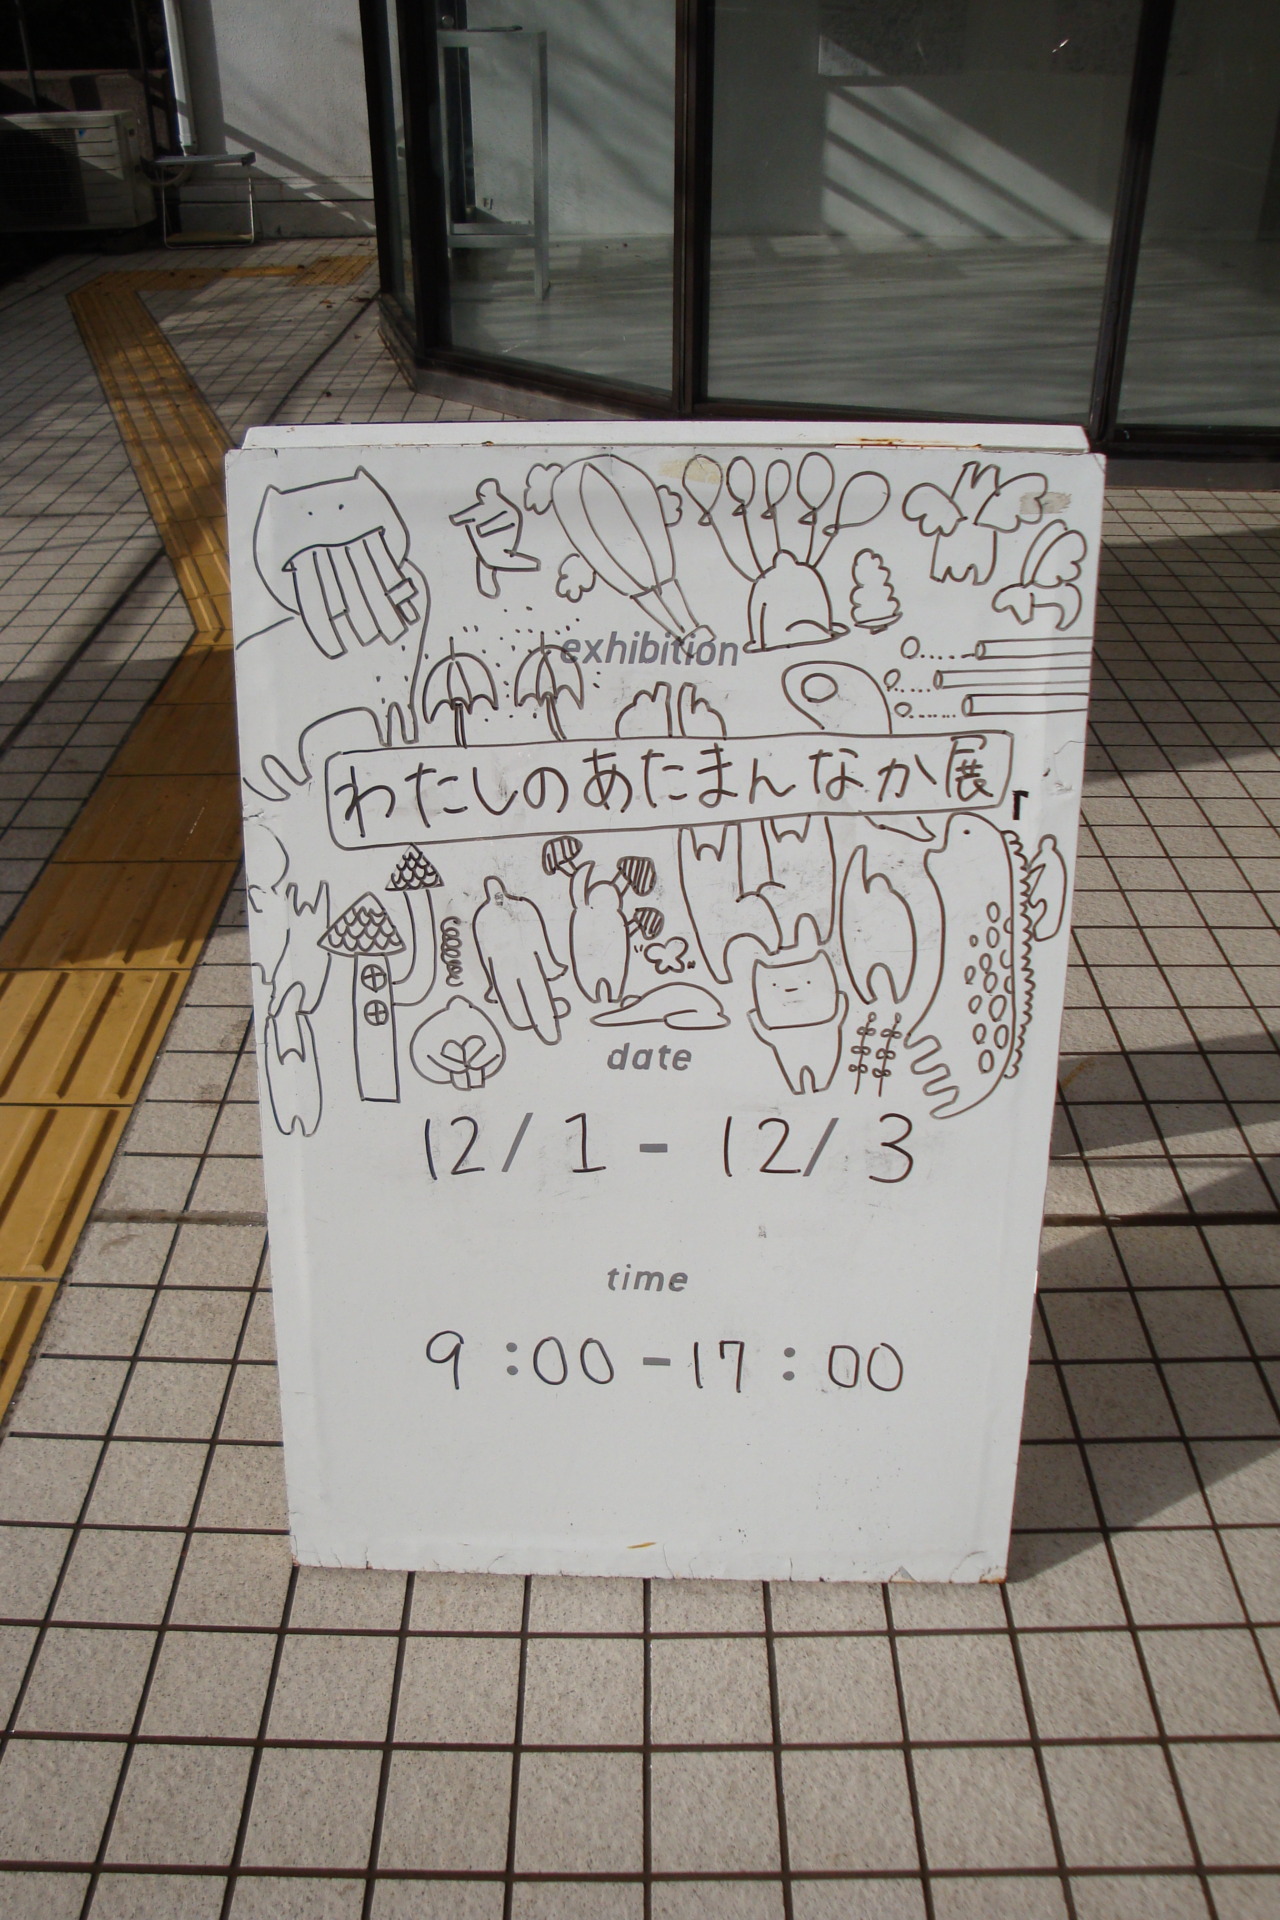 exhibition
わたしのあたまんなか展
date
12/1 - 12/3
time
9:00 - 17:00